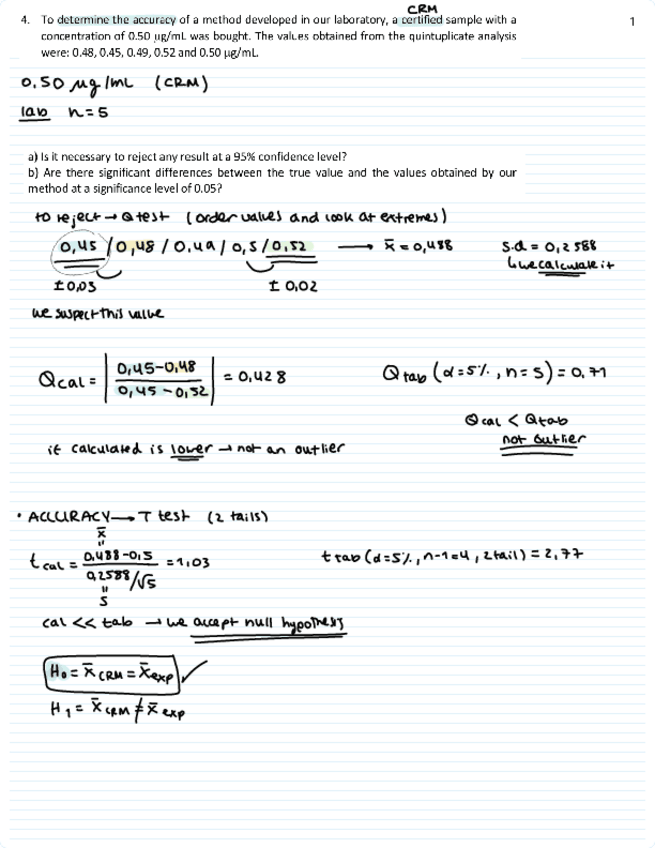 CRM
4. To determine the accuracy of a method developed in our laboratory, a certified sample with a
concentration of 0.50 µg/mL was bought. The values obtained from the quintuplicate analysis
were: 0.48, 0.45, 0.49, 0.52 and 0.50 µg/mL.
1
0.50 µg/mL (CRM)
lab n=5
a) Is it necessary to reject any result at a 95% confidence level?
b) Are there significant differences between the true value and the values obtained by our
method at a significance level of 0.05?
to reject → Q test (order values and look at extremes)
0,45 / 0,48 / 0,49 / 0,5 / 0,52 → x̄ = 0,488 s.d = 0,2588
↳ we calculate it
± 0,03 ± 0,02
we suspect this value
Qcal = | 0,45-0,48 / 0,45-0,52 | = 0,428 Qtab (α=5%, n=5) = 0,71
Qcal < Qtab
not outlier
if calculated is lower → not an outlier
• ACCURACY → T test (2 tails)
x̄
"
t cal = 0,488-0,5 / 0,2588/√5 = 1,03 t tab (α=5%, n-1=4, 2 tail) = 2,77
"
S
cal << tab → we accept null hypothesis
H₀ = x̄ CRM = x̄ exp ✓
H₁ = x̄ CRM ≠ x̄ exp